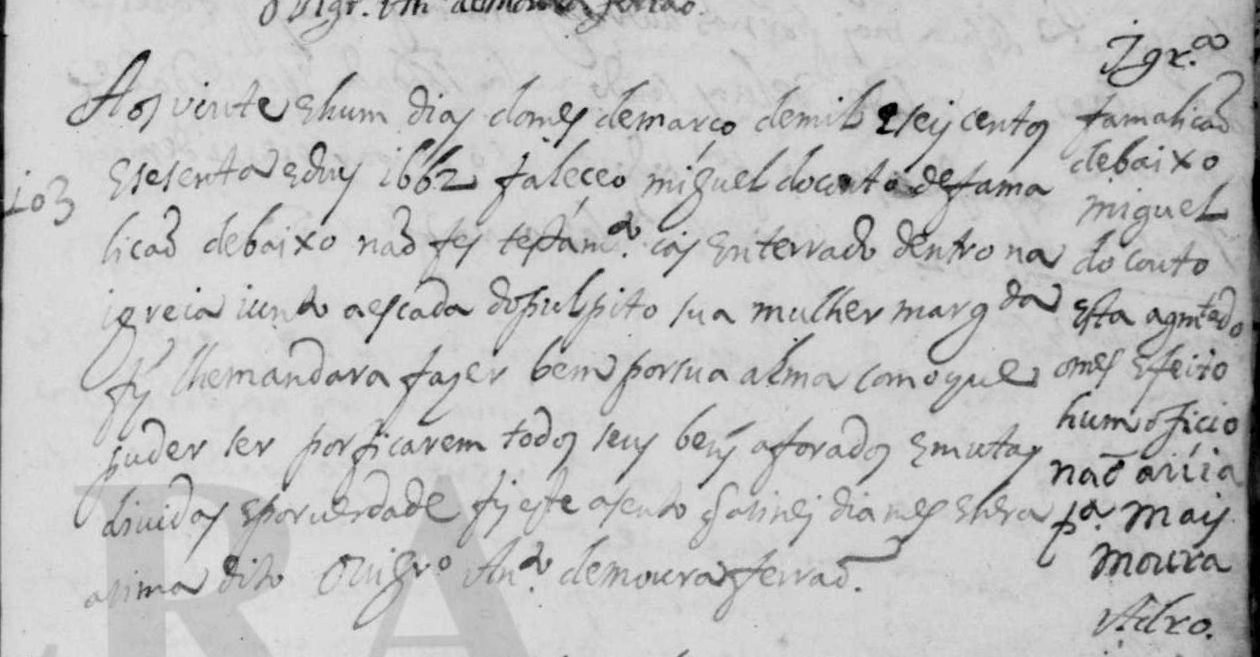 o Vigr. Antº de Moura ferraõ.
Aos vinte e hum dias do mes de março de mil e seis centos
103
e sesenta e dous 1662 faleceo miguel do couto de fama
licaõ debaixo naõ fes testam.to esta enterrado dentro na
igreia iunto a escada do pulpito sua mulher marg.da
fz lhe mandara fazer bem por sua alma com o que
puder ser por ficarem todos seus beñs aforados e muitas
dividas e por verdade fiz este asento q̃ asinei dia mes e hera
asima dito O Vigrº Ant.º de moura ferraõ.
Igr.ª
famalicaõ
debaixo
miguel
do couto
esta
o mes e feito
hum oficio
naõ auia
p.ª mais
Moura
Adro.